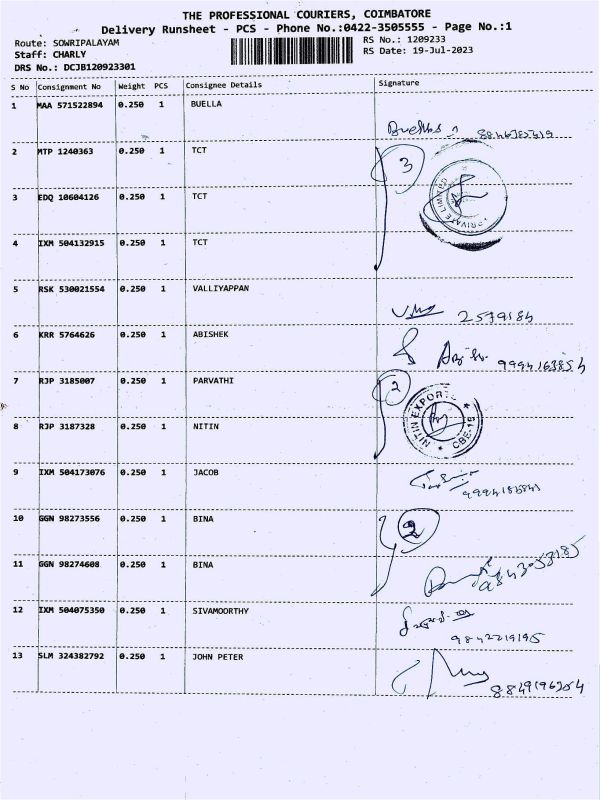 THE PROFESSIONAL COURIERS, COIMBATORE
Delivery Runsheet - PCS - Phone No.:0422-3505555 - Page No.:1
Route: SOWRIPALAYAM RS No.: 1209233
Staff: CHARLY RS Date: 19-Jul-2023
DRS No.: DCJB120923301
S No Consignment No Weight PCS Consignee Details Signature
1 MAA 571522894 0.250 1 BUELLA
2 MTP 1240363 0.250 1 TCT 3
3 EDQ 10604126 0.250 1 TCT
4 IXM 504132915 0.250 1 TCT
5 RSK 530021554 0.250 1 VALLIYAPPAN
2579184
6 KRR 5764626 0.250 1 ABISHEK
9994163854
7 RJP 3185007 0.250 1 PARVATHI 2
NITIN EXPORTS CBE-15
8 RJP 3187328 0.250 1 NITIN
9 IXM 504173076 0.250 1 JACOB
10 GGN 98273556 0.250 1 BINA 2
11 GGN 98274608 0.250 1 BINA
9843053185
12 IXM 504075350 0.250 1 SIVAMOORTHY
9842219195
13 SLM 324382792 0.250 1 JOHN PETER
8849196254